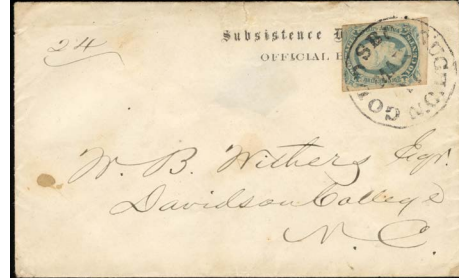 24
Subsistence
OFFICIAL
GOLDSBORO N.C.
W. B. Withers Esqr.
Davidson College
N. C.